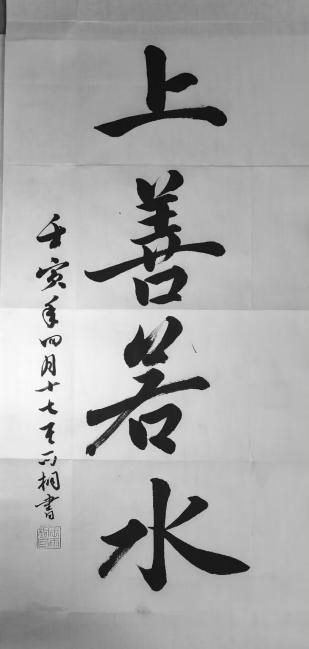 上善若水
壬寅年四月十七 雨桐書